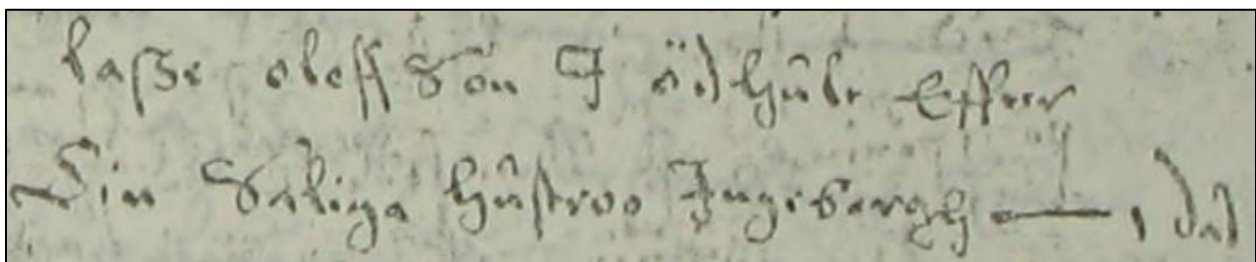 lasse oleffson I ödhult Effter
Sin Saliga hustroo Ingeborgh —, 1 dal